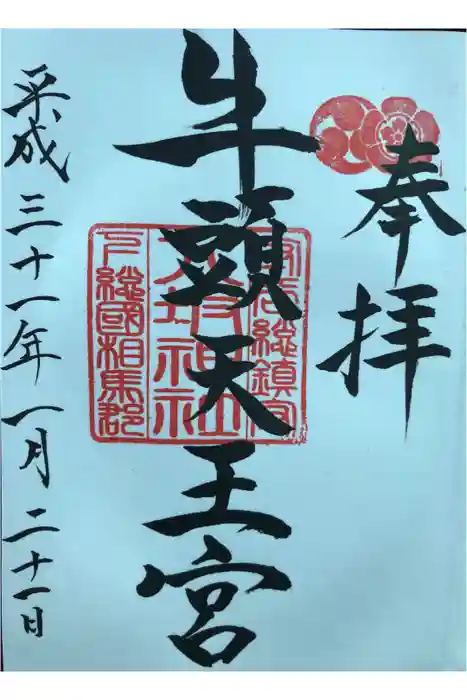 奉拝
牛頭天王宮
下總國相馬郡
平成三十一年一月二十一日